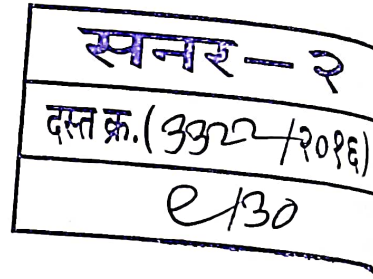 सनर-२
दस्त क्र.(3322/२०१६)
९/30